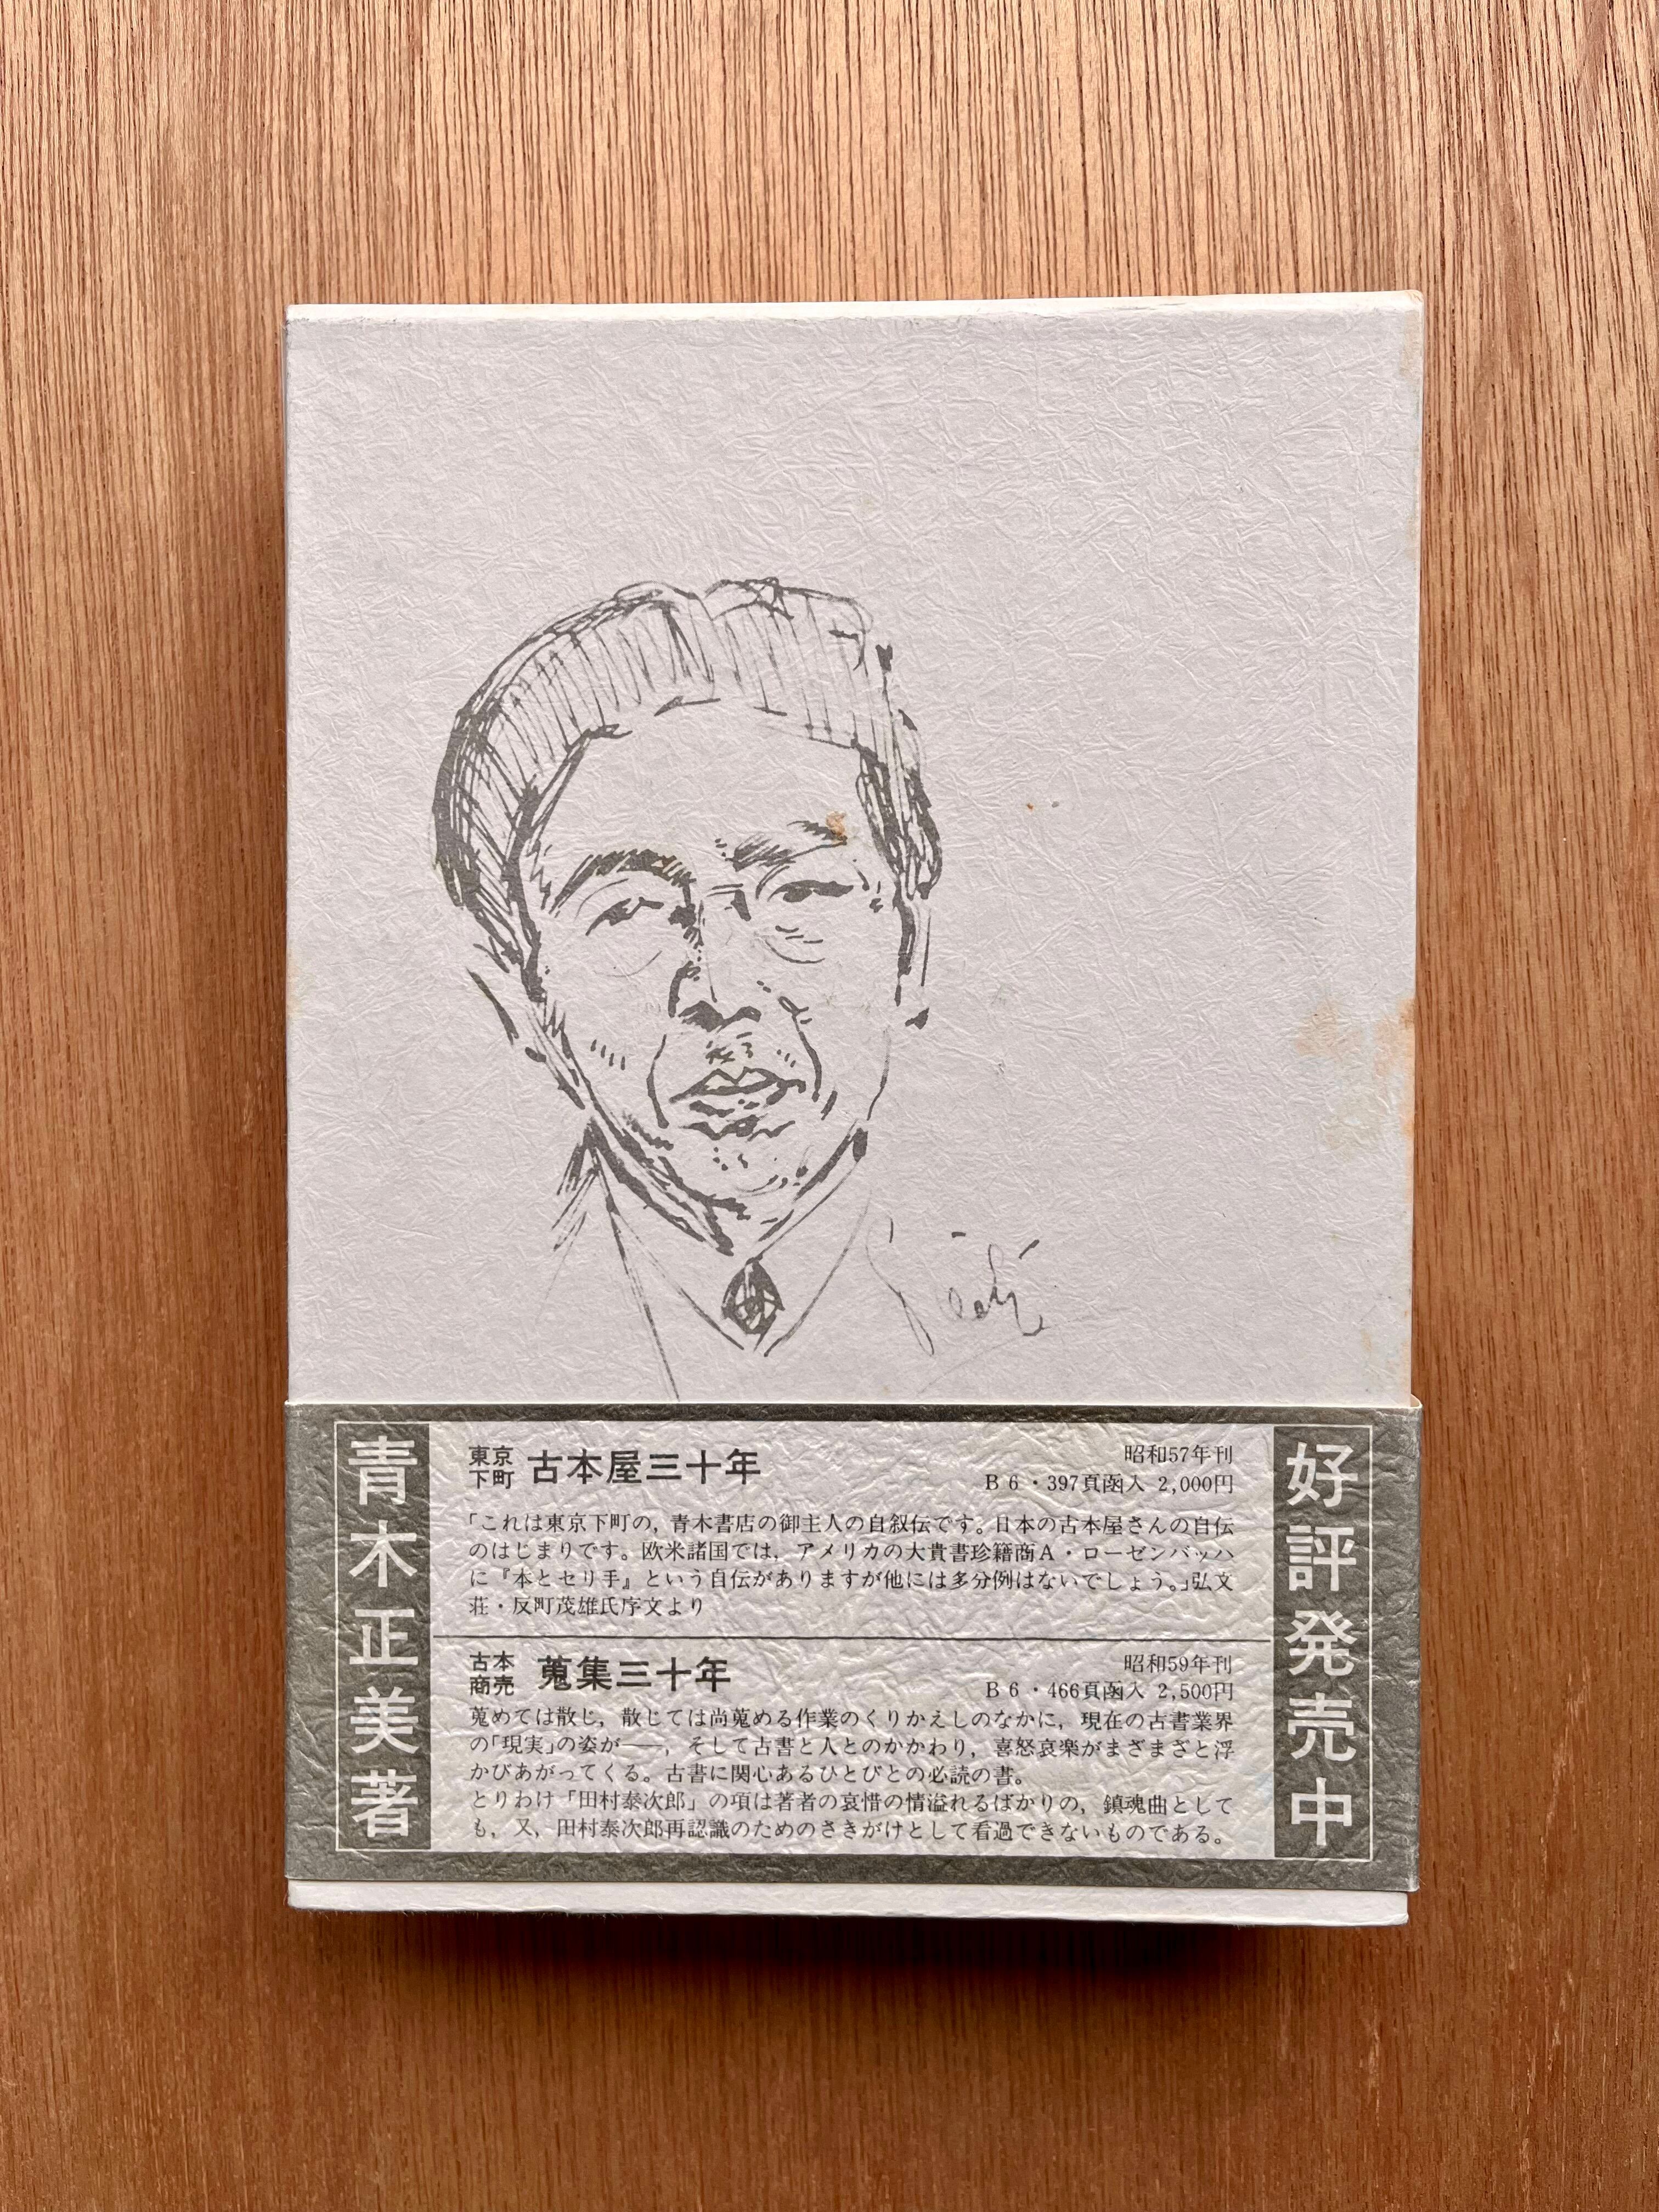 青木正美著
東京下町 古本屋三十年
昭和57年刊
B6・397頁函入 2,000円
「これは東京下町の，青木書店の御主人の自叙伝です。日本の古本屋さんの自伝
のはじまりです。欧米諸国では，アメリカの大貴書珍籍商A・ローゼンバッハ
に『本とセリ手』という自伝がありますが他には多分例はないでしょう。」弘文
荘・反町茂雄氏序文より
古本商売 蒐集三十年
昭和59年刊
B6・466頁函入 2,500円
蒐めては散じ，散じては尚蒐める作業のくりかえしのなかに，現在の古書業界
の「現実」の姿が──，そして古書と人とのかかわり，喜怒哀楽がまざまざと浮
かびあがってくる。古書に関心あるひとびとの必読の書。
とりわけ「田村泰次郎」の項は著者の哀惜の情溢れるばかりの，鎮魂曲として
も，又，田村泰次郎再認識のためのさきがけとして看過できないものである。
好評発売中